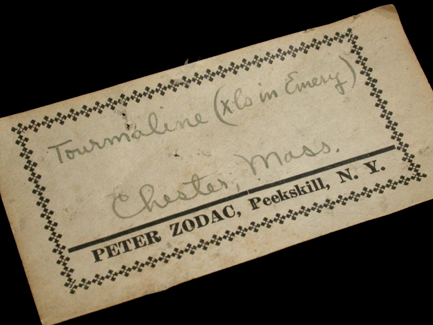 Tourmaline (xls in Emery)
Chester, Mass.
PETER ZODAC, Peekskill, N. Y.